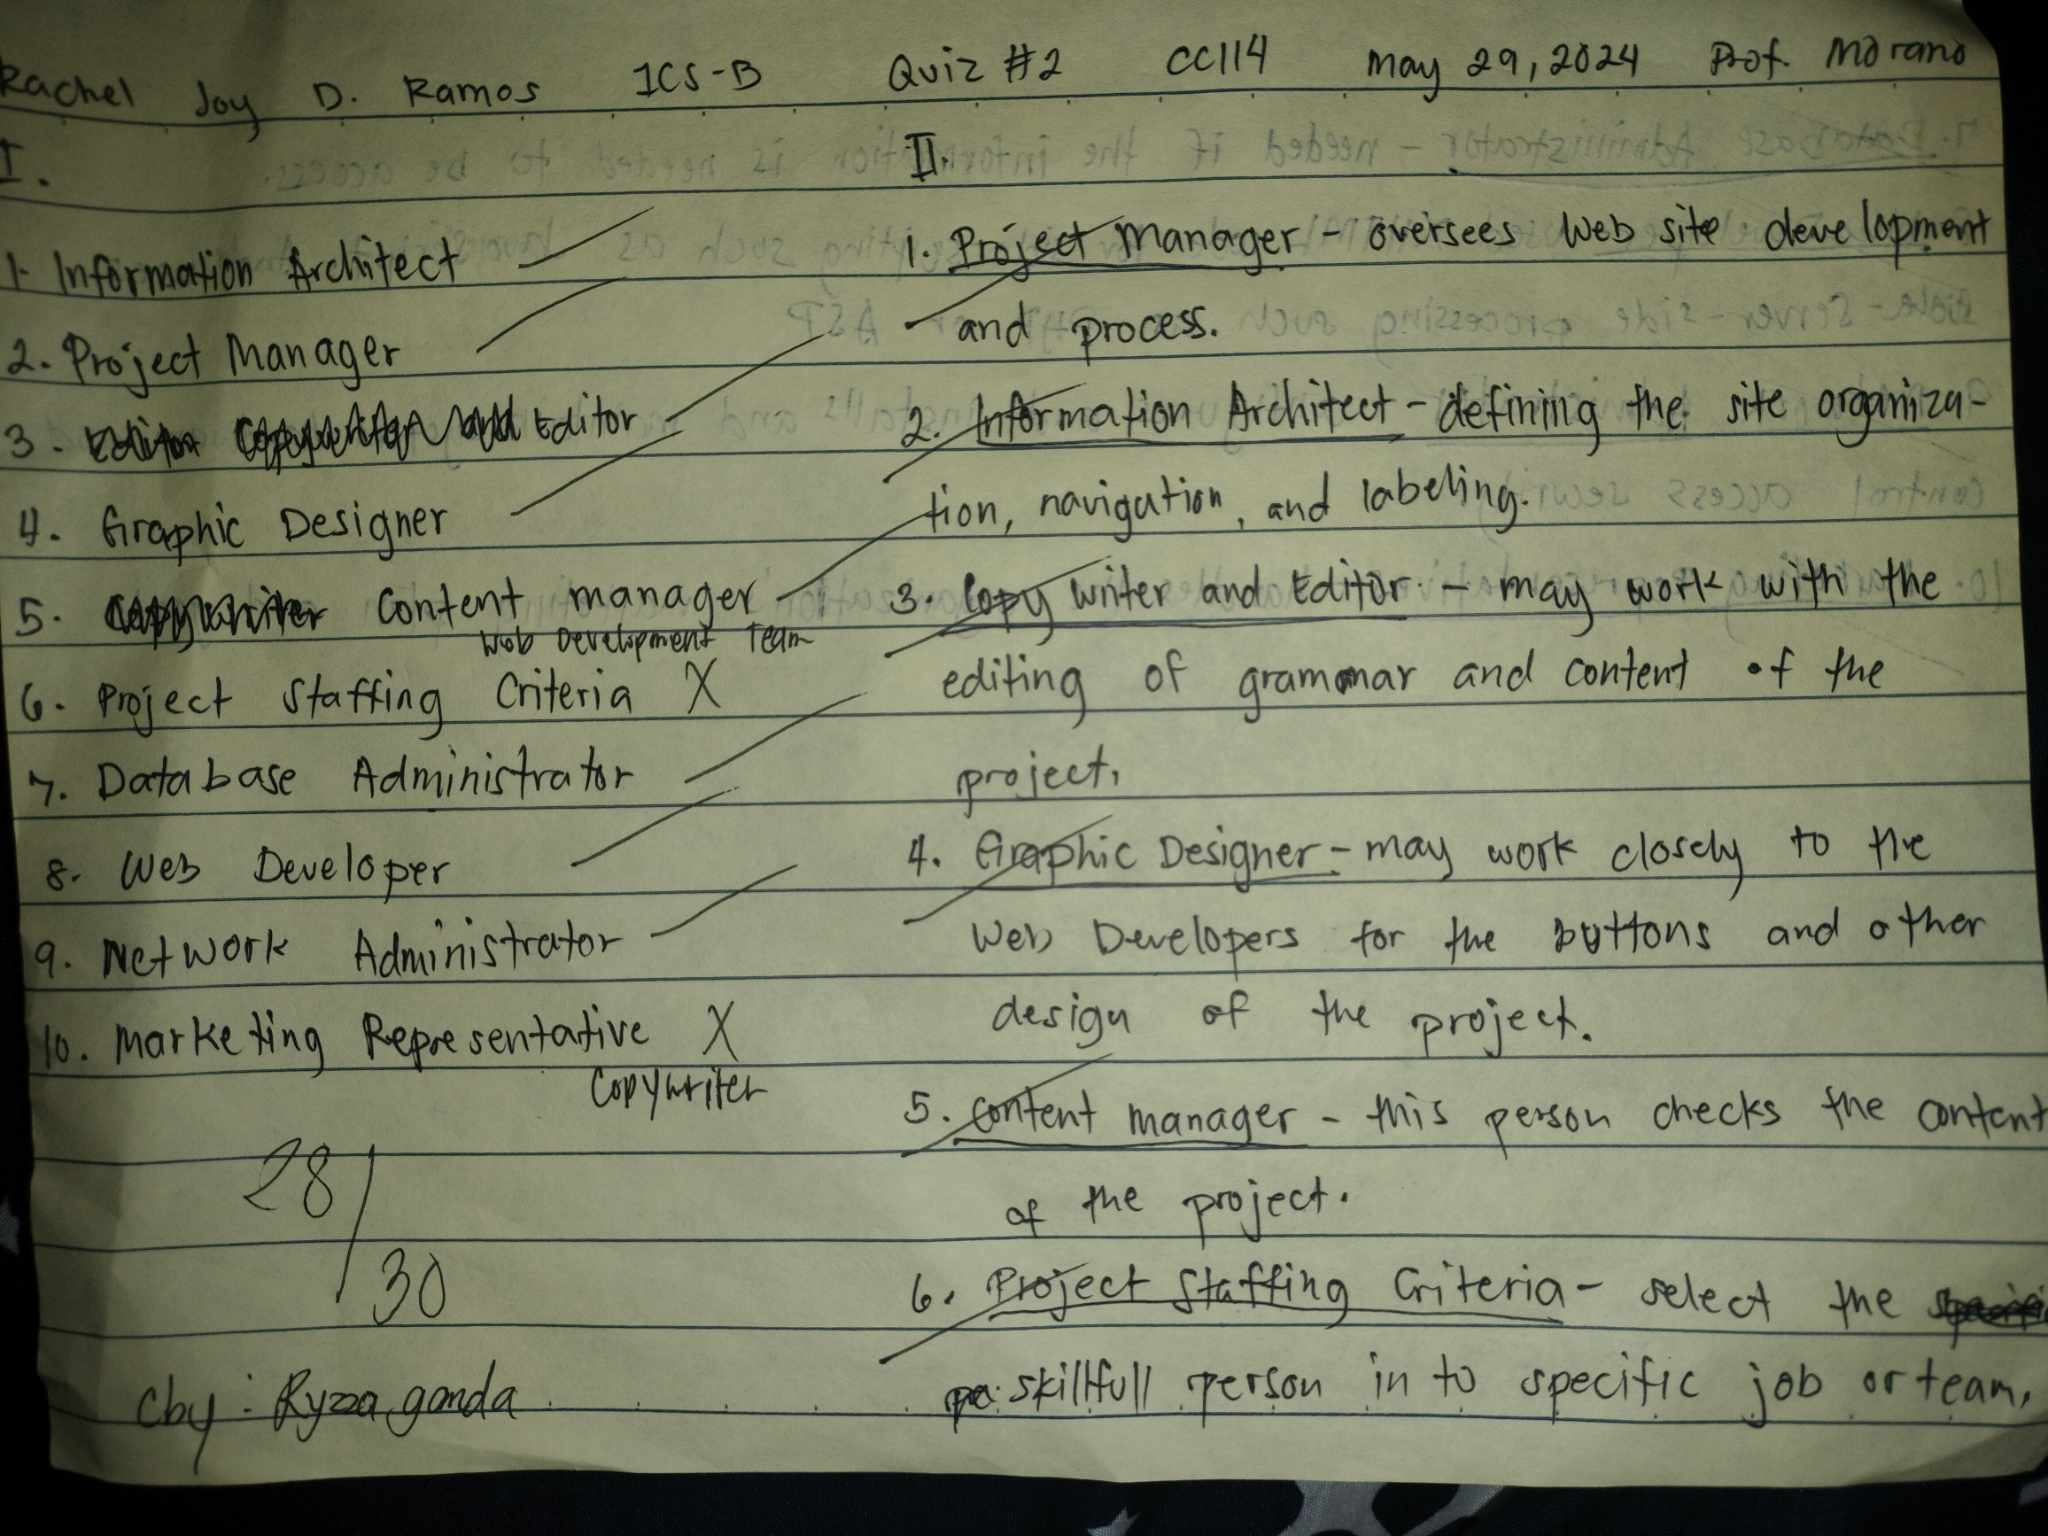 Rachel Joy D. Ramos 1CS-B Quiz #2 CC114 May 29, 2024 Prof. Morano
I.
1. Information Architect
2. Project Manager
3. Editor
4. Graphic Designer
5. Content manager
Web Development Team
6. Project Staffing Criteria X
7. Database Administrator
8. Web Developer
9. Network Administrator
10. Marketing Representative X
Copywriter
28/30
Cby: Ryzza ganda
II.
1. Project Manager - oversees Web site development
and process.
2. Information Architect - defining the site organiza-
tion, navigation, and labeling.
3. Copy writer and Editor - may work with the
editing of grammar and content of the
project.
4. Graphic Designer - may work closely to the
Web Developers for the buttons and other
design of the project.
5. Content manager - this person checks the content
of the project.
6. Project Staffing Criteria - select the
skillfull person in to specific job or team.